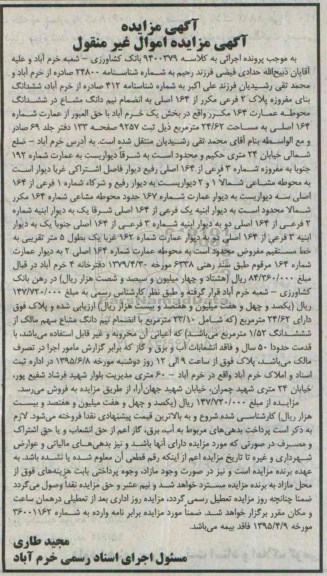 آگهی مزایده
آگهی مزایده اموال غیر منقول
به موجب پرونده اجرائی به کلاسه ۹۴۰۰۳۷۹ بانک کشاورزی – شعبه خرم آباد و علیه
آقایان ذبیح‌الله حدادی فیضی فرزند رحیم به شماره شناسنامه ۲۴۸۰۰ صادره از خرم آباد و
محمد تقی رشیدیان فرزند علی اکبر به شماره شناسنامه ۴۱۲ صادره از خرم آباد، ششدانگ
بنای مفروزه پلاک ۲ فرعی مکرر از ۱۶۴ اصلی به انضمام نیم دانگ مشاع در ششدانگ
محوطه عمارت ۱۶۴ مکرر واقع در بخش یک خرم آباد با حق العبور از عمارت شماره
۱۶۴ اصلی به مساحت ۲۴/۶۲ مترمربع ذیل ثبت ۹۲۵۷ صفحه ۱۳۳ دفتر جلد ۶۹ صادر
و مع الواسطه بنام آقای محمد تقی رشیدیان منتقل شده است. به آدرس خرم آباد – ضلع
شمالی خیابان ۲۴ متری حکیم و محدود است به شرقاً دیواریست به عمارت شماره ۱۹۲
جنوبا به مفروزه شماره ۳ فرعی از ۱۶۴ اصلی رفیع دیوار فاصل اشتراکی غربا دیوار است
به محوطه مشاعی شمالا ۱ و ۲ دیواریست به دیوار رفیع و شرکاء شماره ۱ فرعی از ۱۶۴
اصلی سه دیواریست به دیوار عمارت شماره ۱۶۷ حدود محوطه مشاعی شماره ۱۶۴ مکرر
شمالا محدود است به دیوار ابنیه یک فرعی از ۱۶۴ اصلی شرقا یک به دیوار ابنیه شماره
۲ فرعی از ۱۶۴ اصلی دو به دیوار ابنیه شماره ۳ فرعی از ۱۶۴ اصلی جنوبا یک به دیوار
ابنیه ۳ فرعی از ۱۶۴ اصلی دو به دیوار عمارت شماره ۱۶۲ غربا یک بطول ۵ متر تقریبی به
خط مستقیم مفروض محدود است به محوطه عمارت شماره ۱۶۴ اصلی ۲ به دیوار عمارت
شماره ۱۶۴ مرقوم طبق سند رهنی ۶۳۳۸ مورخه ۱۳۷۹/۴/۳۰ دفترخانه ۴ خرم آباد در قبال
مبلغ ۸۴/۳۶۰/۰۰۰ ریال (هشتاد و چهار میلیون و سیصد و شصت هزار ریال) در رهن بانک
کشاورزی – شعبه خرم آباد قرار گرفته و طبق نظر کارشناس رسمی به مبلغ ۱۴۷/۷۲۰/۰۰۰
ریال (یکصد و چهل و هفت میلیون و هفتصد و بیست هزار ریال) ارزیابی شده و پلاک فوق
دارای ۲۴/۶۲ مترمربع (که شامل ۲۳/۱۰ مترمربع با انضمام نیم دانگ مشاع سهم مالک از
ششدانگ ۱/۵۲ مترمربع می‌باشد) که اعیانی آن مخروبه و غیر قابل استفاده می‌باشد، با
قدمت حدودا ۵۰ سال و فاقد انشعابات آب و برق و گاز که برابر گزارش مامور اجرا در تصرف
مالک می‌باشد، پلاک فوق از ساعت ۹ الی ۱۲ روز دوشنبه مورخه ۱۳۹۵/۶/۸ در اداره ثبت
اسناد و املاک خرم آباد واقع در خرم آباد – ۶۰ متری مدیریت بلوار شهید فرشاد شفیع پور،
خیابان ۲۴ متری شهید چمران، خیابان شهید جهان‌آرا، از طریق مزایده به فروش می‌رسد.
مزایده از مبلغ ۱۴۷/۷۲۰/۰۰۰ ریال (یکصد و چهل و هفت میلیون و هفتصد و بیست
هزار ریال) کارشناسی شده شروع و به بالاترین قیمت پیشنهادی نقدا فروخته می‌شود. لازم
به ذکر است پرداخت بدهی‌های مربوط به آب، برق، گاز اعم از حق انشعاب و یا حق اشتراک
و مصرف در صورتی که مورد مزایده دارای آنها باشد و نیز بدهی‌های مالیاتی و عوارض
شهرداری و غیره تا تاریخ مزایده اعم از اینکه رقم قطعی آن معلوم شده یا نشده باشد، به
عهده برنده مزایده است و نیز در صورت وجود مازاد، وجوه پرداختی بابت هزینه‌های فوق از
محل مازاد به برنده مزایده مسترد خواهد شد و نیم عشر و حق مزایده نقدا وصول می‌گردد
ضمنا چنانچه روز مزایده تعطیل رسمی گردد، مزایده روز اداری بعد از تعطیلی درهمان ساعت
و مکان مقرر برگزار خواهد شد. ضمنا مورد مزایده برابر نامه وارده به شماره ۳۶۰۰۱۱۶۲
مورخه ۱۳۹۵/۴/۹ فاقد بیمه می‌باشد.
مجید طاری
مسئول اجرای اسناد رسمی خرم آباد